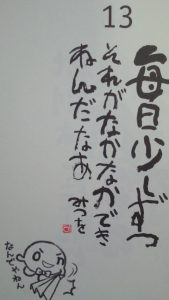 13
毎日少しずつ
それがなかなかでき
ねんだなあ
みつを